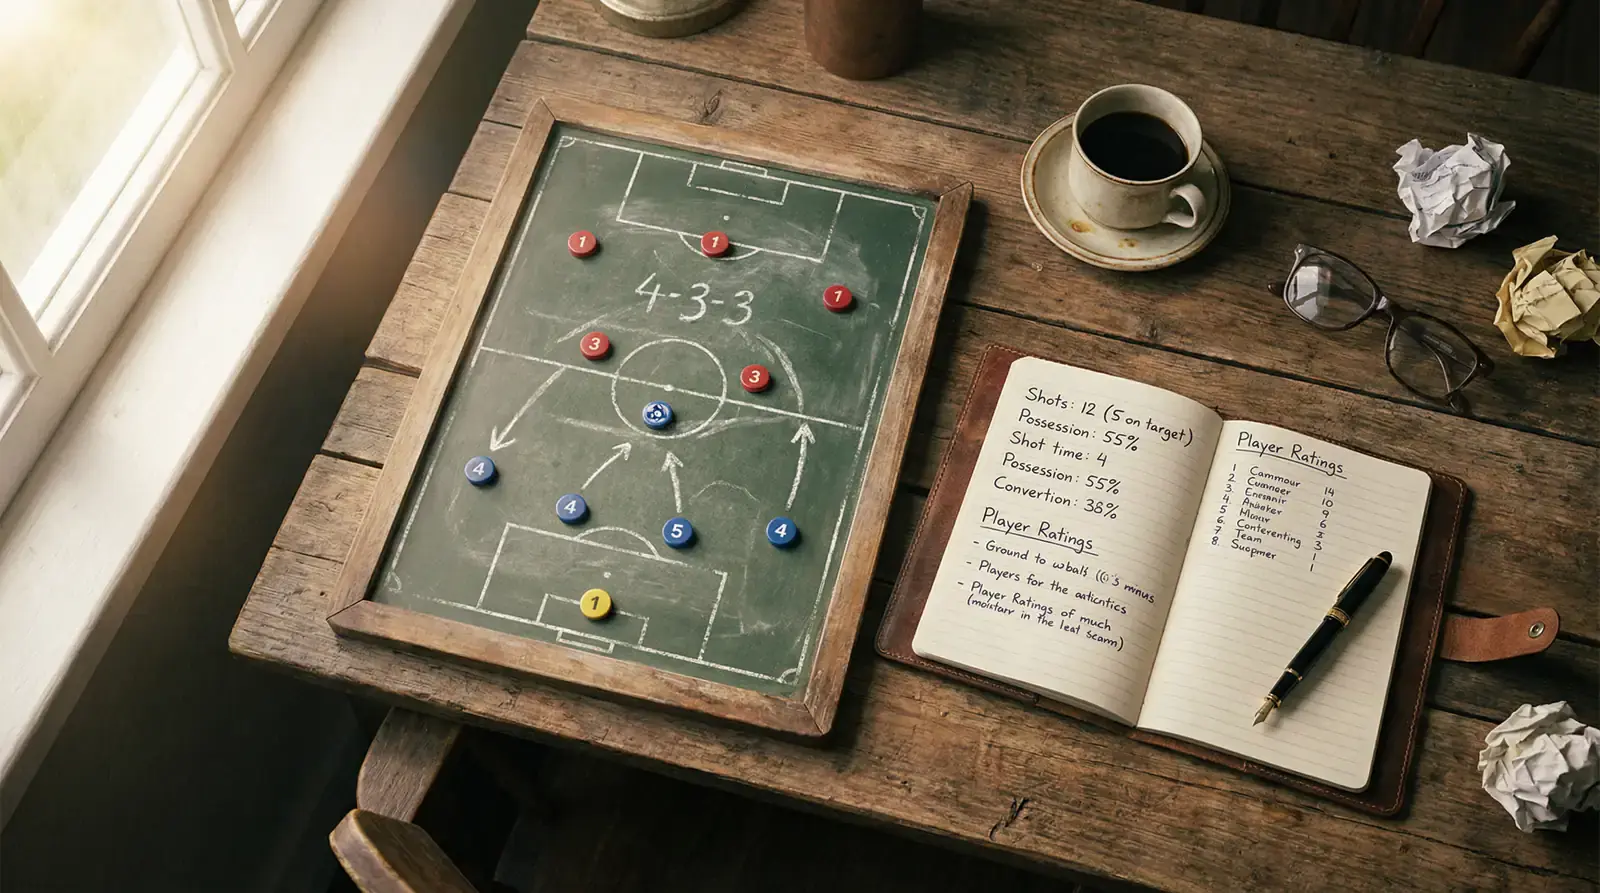 1
1
1
4-3-3
3
3
4
4
5
4
1
Shots: 12 (5 on target)
Possession: 55%
Shot time: 4
Possession: 55%
Convertion: 38%
Player Ratings
- Ground to
- Players for the
- Player Ratings of much
in the leat
Player Ratings
1 Cammour 14
2 10
3. 9
4. 6
5 3
6. Conterenting 3
7 Team 1
8. Suopmer 1